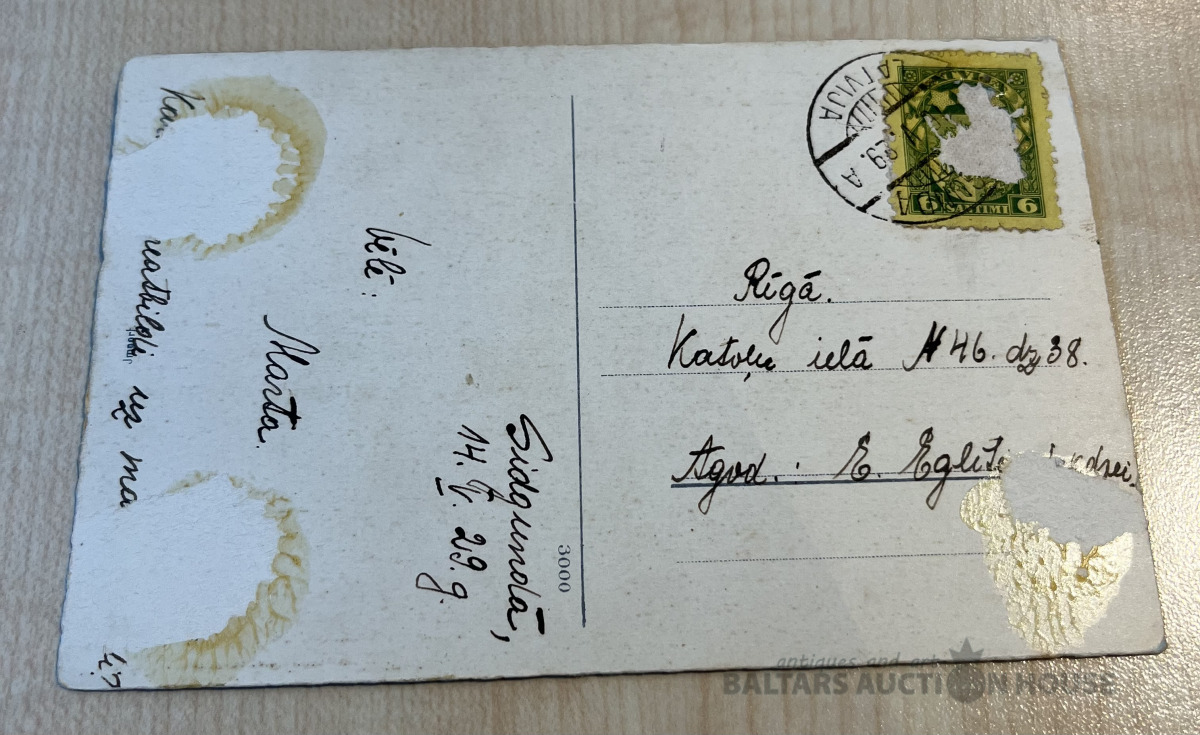 neatbildi uz ma
Marta.
bēlē.
Sidgundā,
14. V. 29. g.
3000
LATVIJA
LATVIJA
29.
6 SANTIMI 6
Rīgā.
Katoļu ielā № 46. dz 38.
Agod. E.
antiques and art
BALTARS AUCTION HOUSE